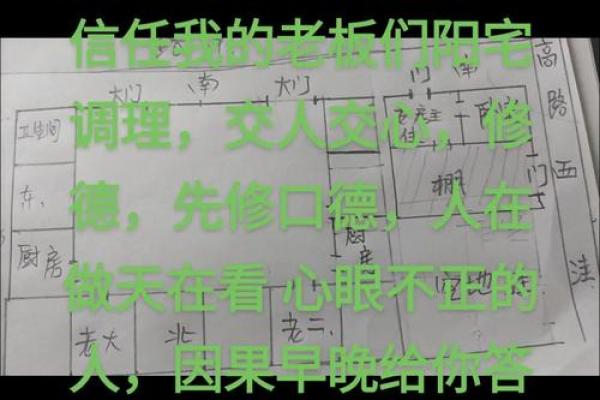 信任我的老板们阳宅
大门 南 大门
门 南
高
路
卫生间
调理，交人交心，修
棚
门 西
德，先修口德，人在
东
厨房
厨房
洼
做天在看 心眼不正的
老大 北 老二
人，因果早晚给你答